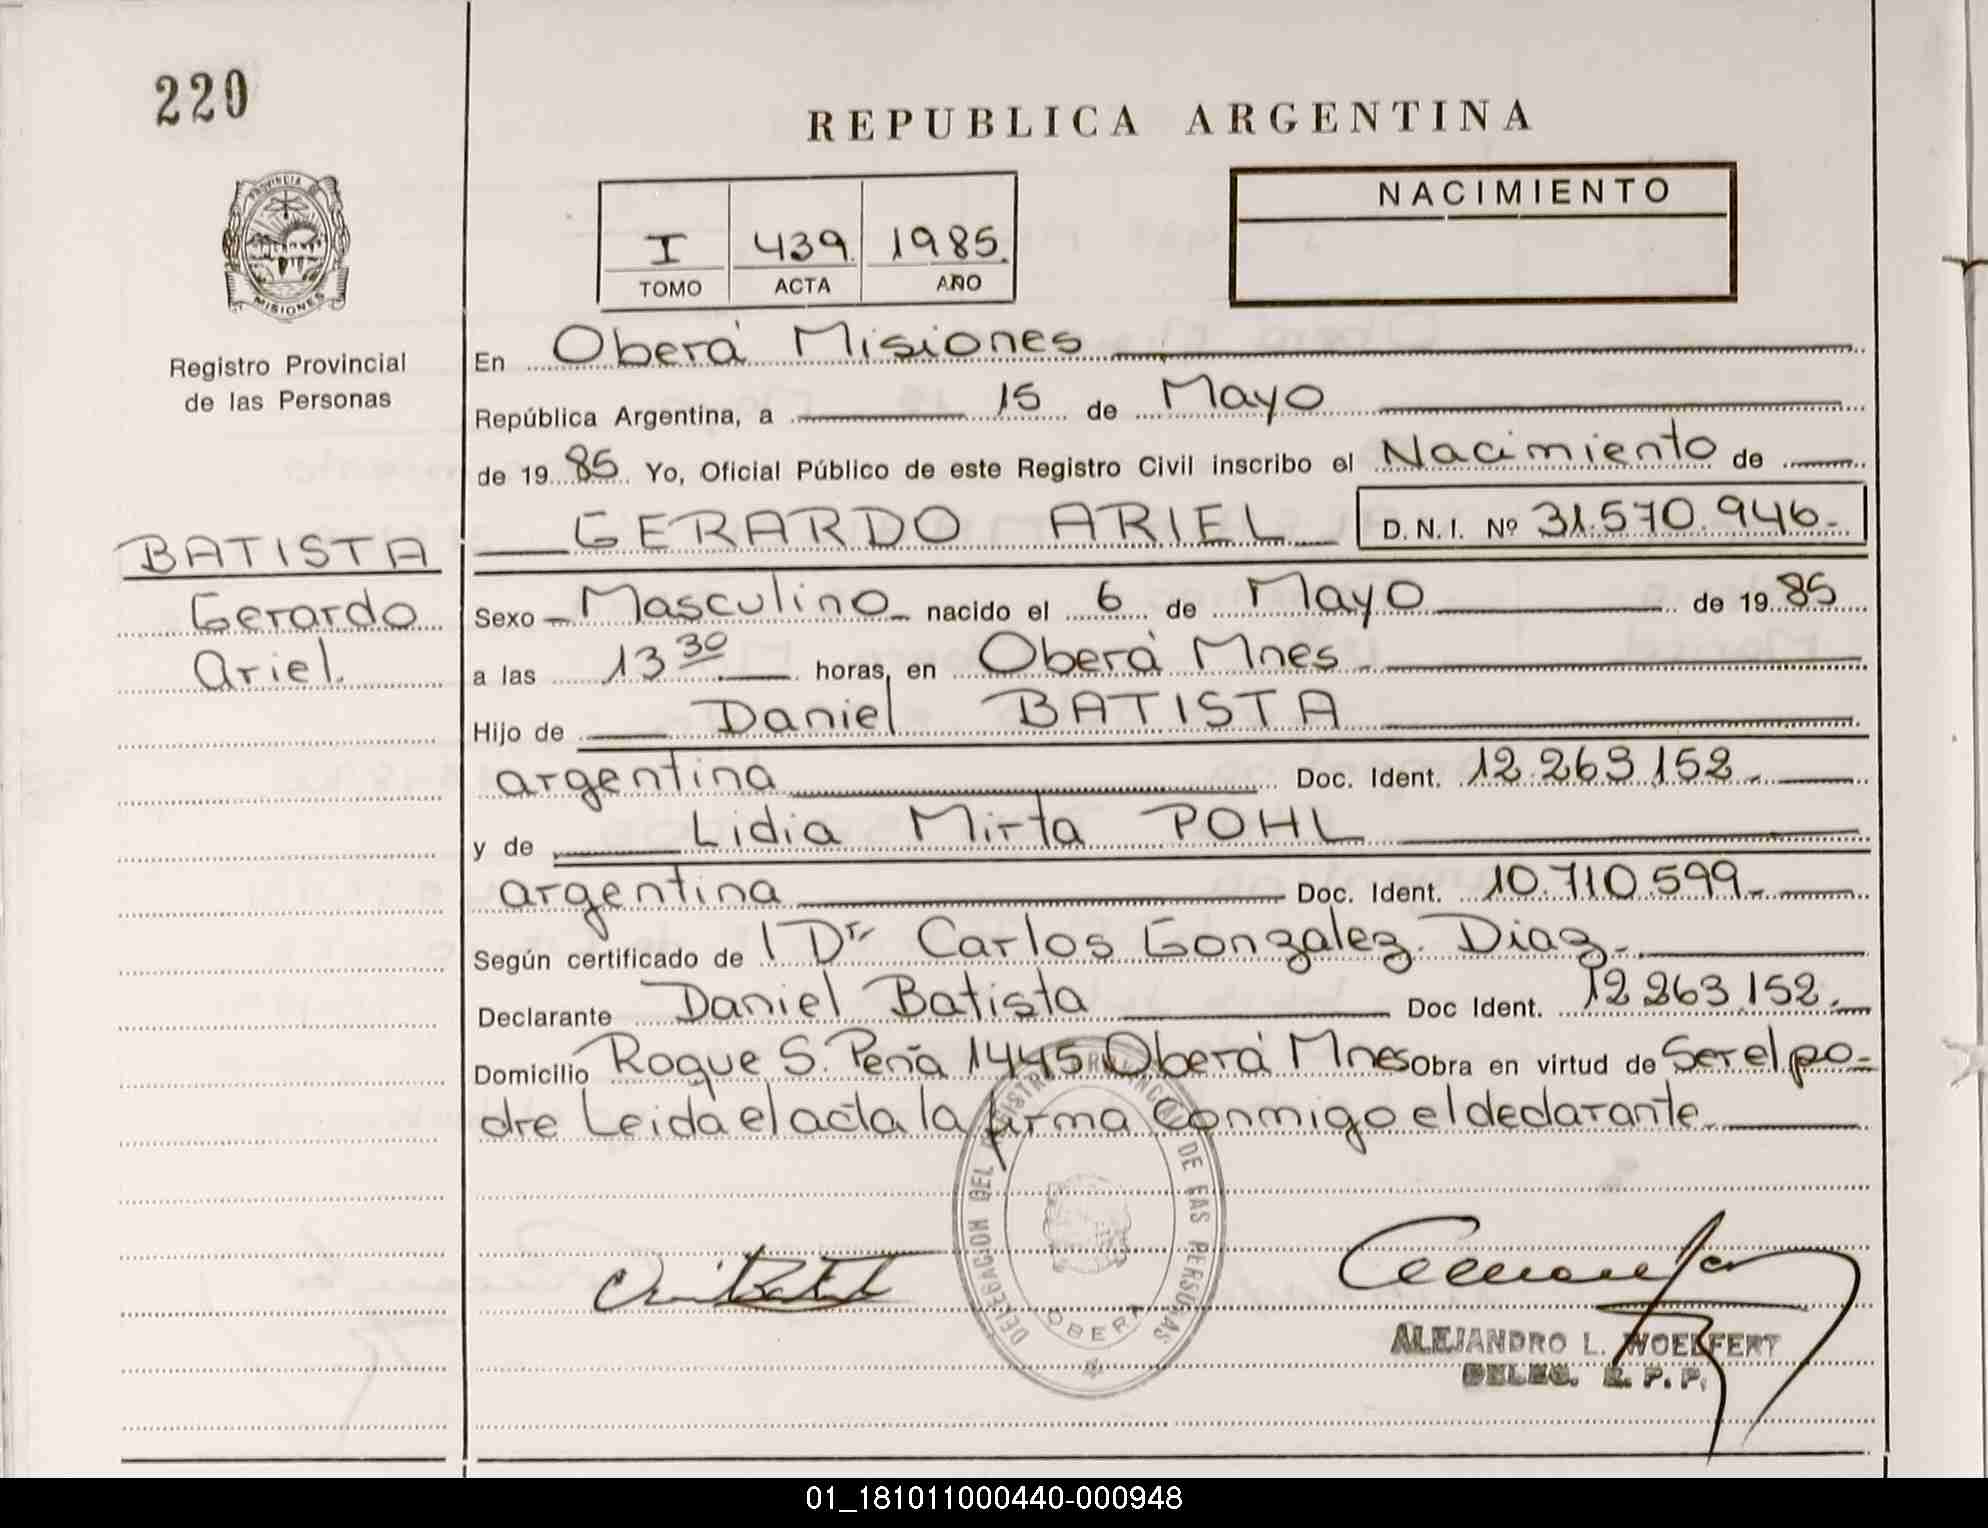 220
REPUBLICA ARGENTINA
PROVINCIA
MISIONES
Registro Provincial
de las Personas
I 439. 1985.
TOMO ACTA AÑO
NACIMIENTO
En Oberá Misiones
República Argentina, a 15 de Mayo
de 19 85 Yo, Oficial Público de este Registro Civil inscribo el Nacimiento de
GERARDO ARIEL D. N. I. Nº 31.570.946.-
BATISTA
Gerardo
Ariel.
Sexo Masculino nacido el 6 de Mayo de 19 85
a las 13 30 horas, en Oberá Mnes
Hijo de Daniel BATISTA
argentina Doc. Ident. 12.263.152.
y de Lidia Mirta POHL
argentina Doc. Ident. 10.710.599.
Según certificado de l Dr Carlos Gonzalez Diaz.
Declarante Daniel Batista Doc Ident. 12.263.152.
Domicilio Roque S. Peña 1445 Oberá Mnes Obra en virtud de Ser el pa=
dre Leida el acta la firma Conmigo el declarante.
DELEGACION DEL REGISTRO PROVINCIAL DE LAS PERSONAS
OBERA
ALEJANDRO L. WOELFERT
DELEG. R. P. P.
01_181011000440-000948